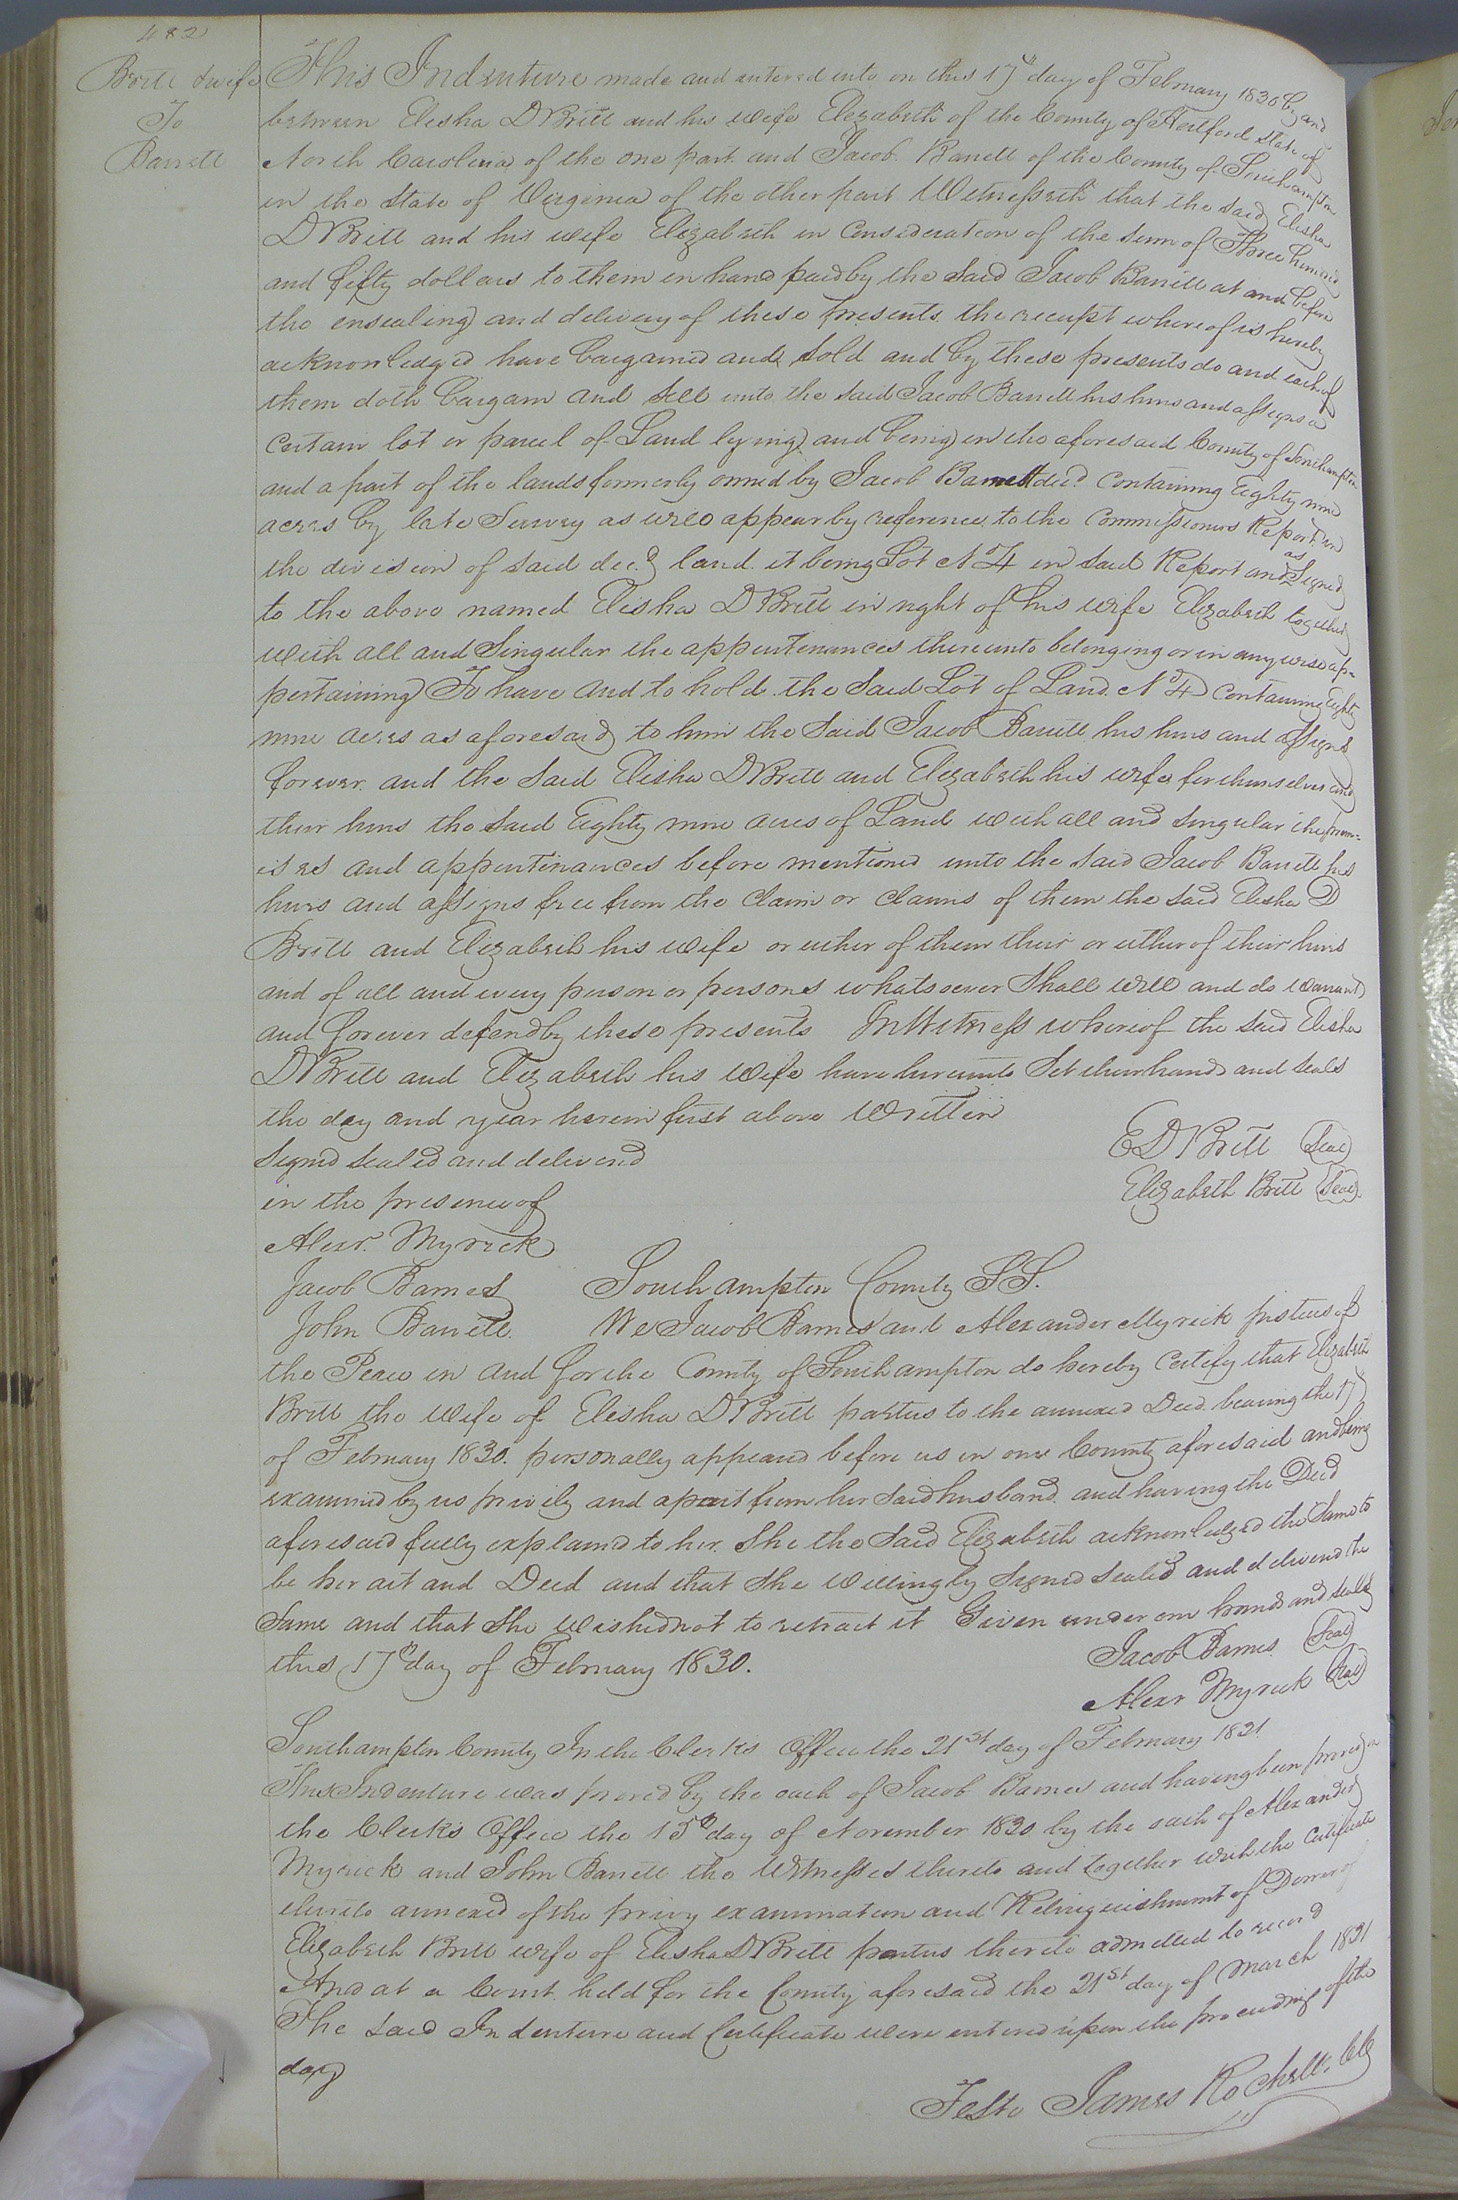 482
Britt & wife
To
Barrett
This Indenture made and entered into on this 17th day of February 1830 by and
between Elisha D Britt and his wife Elizabeth of the County of Hertford State of
North Carolina of the one part and Jacob Barrett of the County of Southampton
in the State of Virginia of the other part Witnesseth that the said Elisha
D Britt and his wife Elizabeth in Consideration of the sum of Three hundred
and fifty dollars to them in hand paid by the said Jacob Barrett at and before
the ensealing and delivery of these presents the receipt whereof is hereby
acknowledged have bargained and sold and by these presents do and each of
them doth bargain and sell unto the said Jacob Barrett his heirs and assigns a
Certain lot or parcel of Land lying and being in the aforesaid County of Southampton
and a part of the lands formerly owned by Jacob Barrett decd Containing Eighty nine
acres by late Survey as will appear by reference to the Commissioners Report in
the division of said decd land it being Lot No 4 in said Report and assigned
to the above named Elisha D Britt in right of his wife Elizabeth together
with all and Singular the appurtenances thereunto belonging or in any wise ap=
pertaining To have and to hold the said Lot of Land No 4 Containing Eighty
nine acres as aforesaid to him the said Jacob Barrett his heirs and assigns
forever. and the said Elisha D Britt and Elizabeth his wife for themselves and
their heirs the said Eighty nine acres of Land with all and singular the prem=
ises and appurtinances before mentioned unto the said Jacob Barrett his
heirs and assigns free from the Claim or Claims of them the said Elisha D
Britt and Elizabeth his wife or either of them their or either of their heirs
and of all and every person or persons whatsoever Shall will and do warrant
and forever defend by these presents In Witness whereof the said Elisha
D Britt and Elizabeth his Wife have hereunto Set their hands and seals
the day and year herein first above Written
Signed sealed and delivered
in the presence of
E D Britt (Seal)
Elizabeth Britt (Seal)
Alexr. Myrick
Jacob Barnes
John Barrett.
Southampton County SS.
We Jacob Barnes and Alexander Myrick Justices of
the Peace in and for the County of Southampton do hereby Certify that Elizabeth
Britt the Wife of Elisha D Britt parties to the annexed Deed bearing the 17
of February 1830. personally appeared before us in our County aforesaid and being
examined by us privily and apart from her said husband and having the Deed
aforesaid fully explained to her. She the said Elizabeth acknowledged the Same to
be her act and Deed and that She willingly Signed Sealed and delivered the
Same and that She wished not to retract it Given under our hands and seals
this 17th day of February 1830.
Jacob Barnes (Seal)
Alexr Myrick (Seal)
Southampton County In the Clerks Office the 21st day of February 1831
This Indenture was proved by the oath of Jacob Barnes and having been proved in
the Clerks Office the 15th day of November 1830 by the oath of Alexander
Myrick and John Barrett the Witnesses thereto and together with the Certificate
thereto annexed of the privy examination and Relinquishment of Dower of
Elizabeth Britt wife of Elisha D Britt parties thereto admitted to record
And at a Court held for the County aforesaid the 21st day of March 1831
The said Indenture and Certificate were entered upon the proceedings of the
day
Teste James Rochelle. Clk